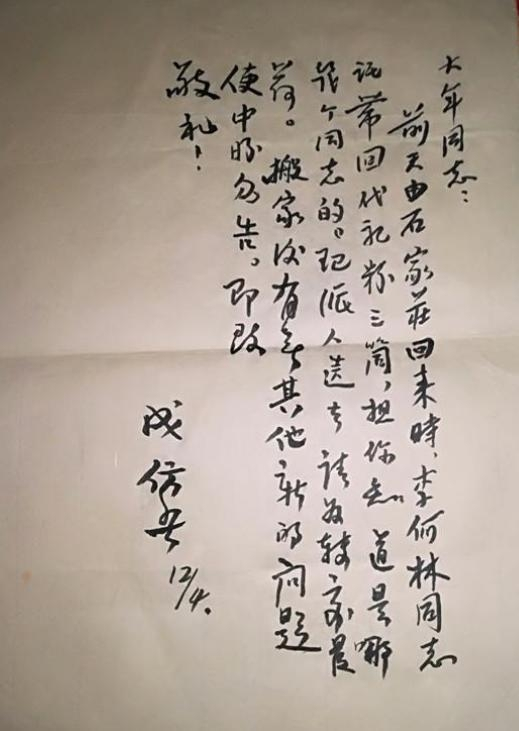 大年同志：
前天由石家莊回来時、李何林同志
託带回代乳粉三筒，担你知道是哪
张个同志的。现派人送去请为转交是
荷。搬家后有无其他新的问题
便中盼勿告。即致
敬礼！
成仿吾
12/4.